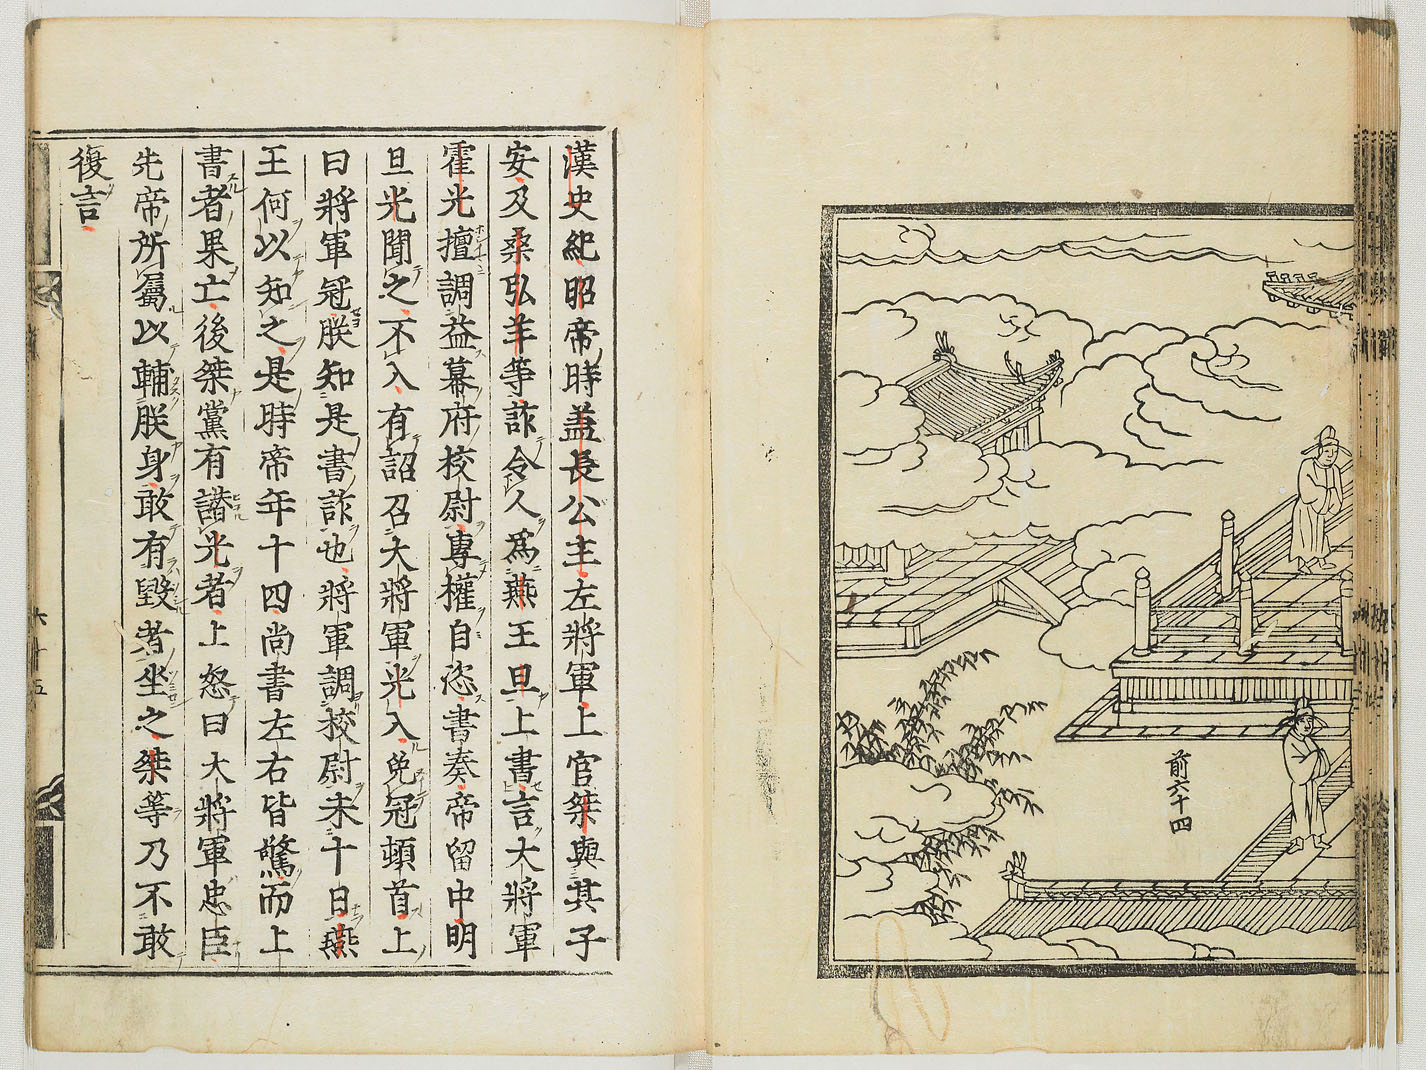 前六十四
漢史紀昭帝時蓋長公主左將軍上官桀與其子
安及桑弘羊等詐令人爲燕王旦上書言大將軍
霍光擅調益幕府校尉專權自恣書奏帝留中明
旦光聞之不入有詔召大將軍光入免冠頓首上
曰將軍冠朕知是書詐也將軍調校尉未十日燕
王何以知之是時帝年十四尚書左右皆驚而上
書者果亡後桀黨有譖光者上怒曰大將軍忠臣
先帝所屬以輔朕身敢有毀者坐之桀等乃不敢
復言
六十五